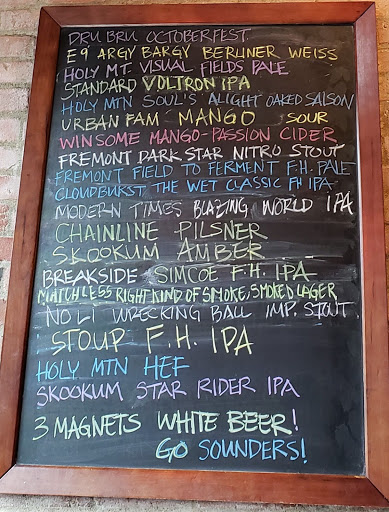 DRU BRU OCTOBERFEST
E9 ARGY BARGY BERLINER WEISS
HOLY MT. VISUAL FIELDS PALE
STANDARD VOLTRON IPA
HOLY MTN SOUL'S ALIGHT OAKED SAISON
URBAN FAM MANGO SOUR
WINSOME MANGO-PASSION CIDER
FREMONT DARK STAR NITRO STOUT
FREMONT FIELD TO FERMENT F.H. PALE
CLOUDBURST THE WET CLASSIC FH IPA
MODERN TIMES BLAZING WORLD IPA
CHAINLINE PILSNER
SKOOKUM AMBER
BREAKSIDE SIMCOE F.H. IPA
MATCHLESS RIGHT KIND OF SMOKE, SMOKED LAGER
NO LI WRECKING BALL IMP. STOUT
STOUP F.H. IPA
HOLY MTN HEF
SKOOKUM STAR RIDER IPA
3 MAGNETS WHITE BEER!
GO SOUNDERS!